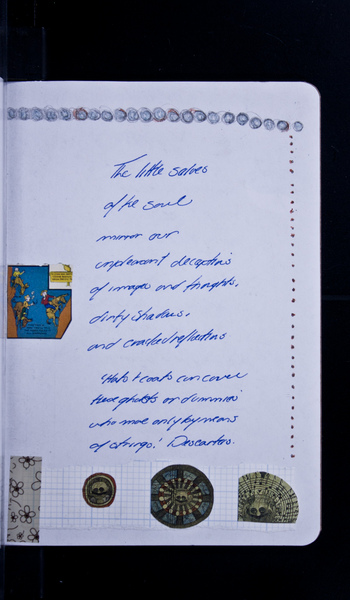 The little salves
of the soul
mirror our
unpleasant deceptions
of images and thoughts,
dirty shadows,
and cracked reflections
'Hats & coats can cover
these ghosts or dummies
who move only by means
of strings.' Descartes.